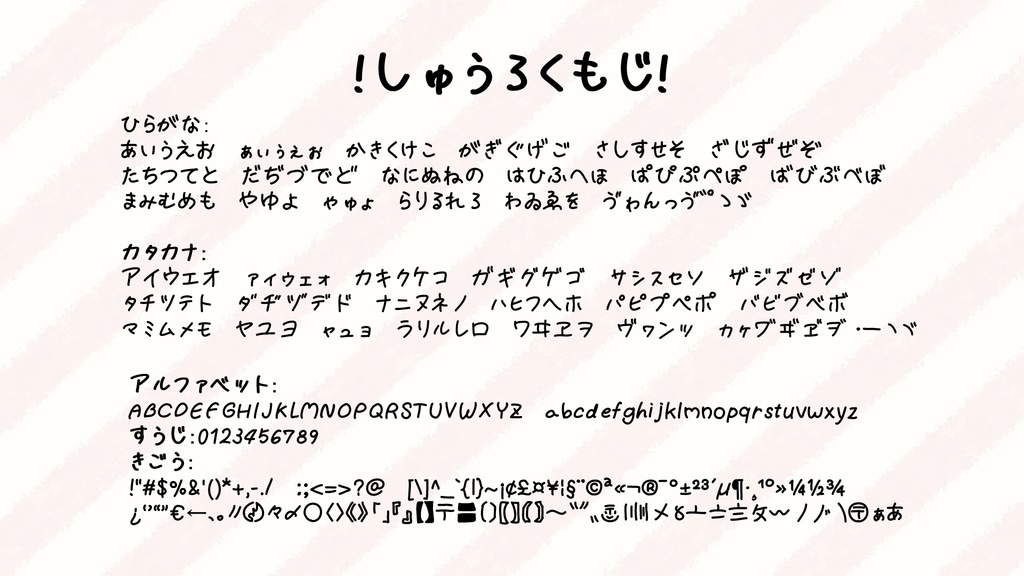 !しゅうろくもじ!
ひらがな:
あいうえお ぁぃぅぇぉ かきくけこ がぎぐげご さしすせそ ざじずぜぞ
たちつてと だぢづでど なにぬねの はひふへほ ぱぴぷぺぽ ばびぶべぼ
まみむめも やゆよ ゃゅょ らりるれろ わゐゑを ゔゎんっゔ゛゜ゝゞ
カタカナ:
アイウエオ ァィゥェォ カキクケコ ガギグゲゴ サシスセソ ザジズゼゾ
タチツテト ダヂヅデド ナニヌネノ ハヒフヘホ パピプペポ バビブベボ
マミムメモ ヤユヨ ャュョ ラリルレロ ワヰヱヲ ヴヮンッ ヵヶヷヸヹヺ・ーヽヾ
アルファベット:
ABCDEFGHIJKLMNOPQRSTUVWXYZ abcdefghijklmnopqrstuvwxyz
すうじ:0123456789
きごう:
!"#$%&'()*+,-./ :;<=>?@ [\]^_`{|}~¡¢£¤¥¦§¨©ª«¬®¯°±²³´µ¶·¸¹º»¼½¾
¿‘’“”€←、。〃々〆〇〈〉《》「」『』【】〒〓〔〕〖〗〘〙〜〝〞〟〠〡〢〣〤〥〦〧〨〩〰〳〴〵〶ぁあ